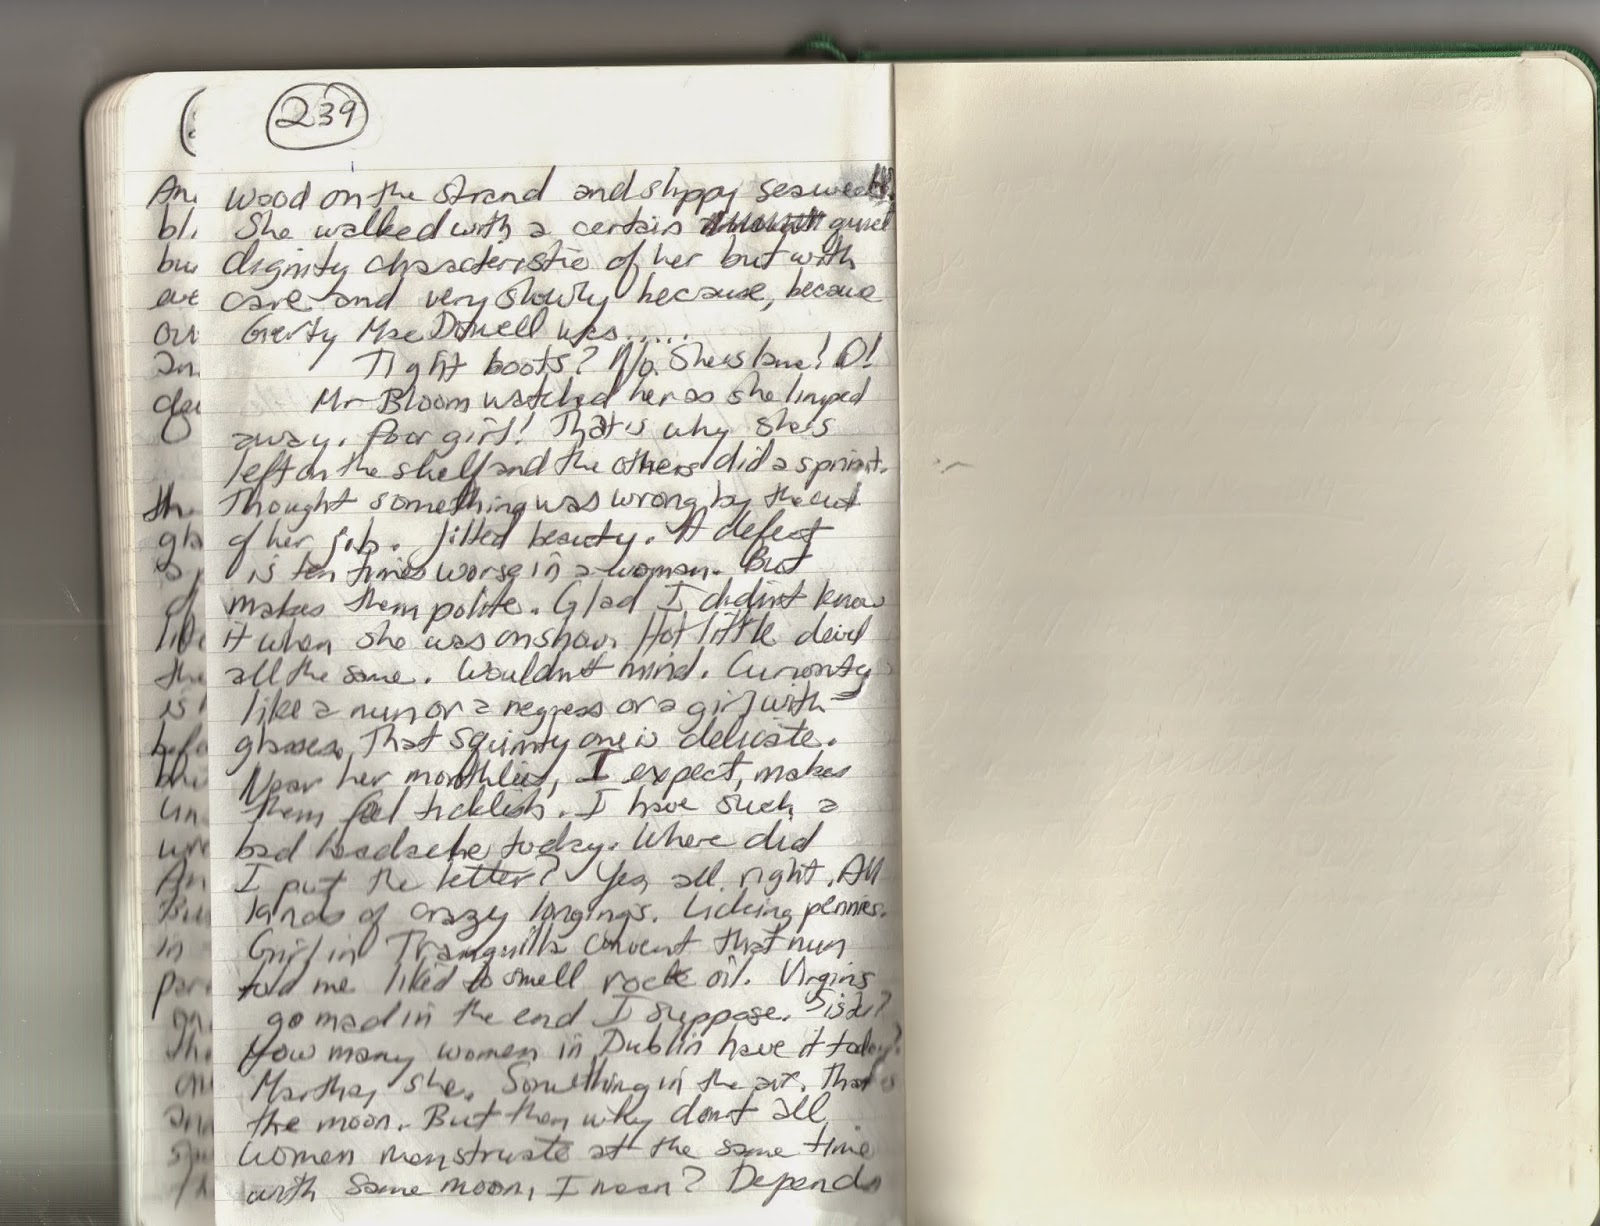 239
wood on the strand and slippy seaweed.
She walked with a certain quiet
dignity characteristic of her but with
care and very slowly because, because
Gerty MacDowell was.....
Tight boots? No. She's lame! O!
Mr Bloom watched her as she limped
away. Poor girl! That is why she's
left on the shelf and the others did a sprint.
Thought something was wrong by the cut
of her jib. Jilted beauty. A defect
is ten times worse in a woman. But
makes them polite. Glad I didn't know
it when she was on show. Hot little devil
all the same. Wouldn't mind. Curiosity
like a nun or a negress or a girl with
glasses. That squinty one is delicate.
Near her monthlies, I expect, makes
them feel ticklish. I have such a
bad headache today. Where did
I put the letter? Yes, all right. All
kinds of crazy longings. Licking pennies.
Girl in Tranquilla convent that nun
told me liked to smell rock oil. Virgins
go mad in the end I suppose. Sister?
How many women in Dublin have it today?
Martha, she. Something in the air. That's
the moon. But then why don't all
women menstruate at the same time
with same moon, I mean? Depends